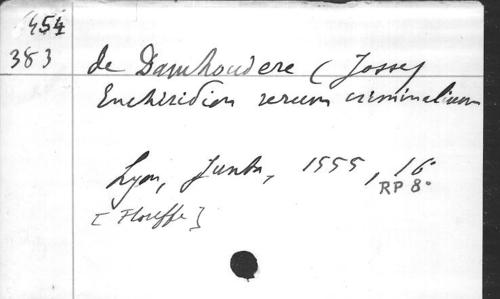 454
383
de Damhoudere (Josse)
Enchiridion rerum criminalium
Lyon, Junta, 1555, 16°
RP 8°
[Floreffe]